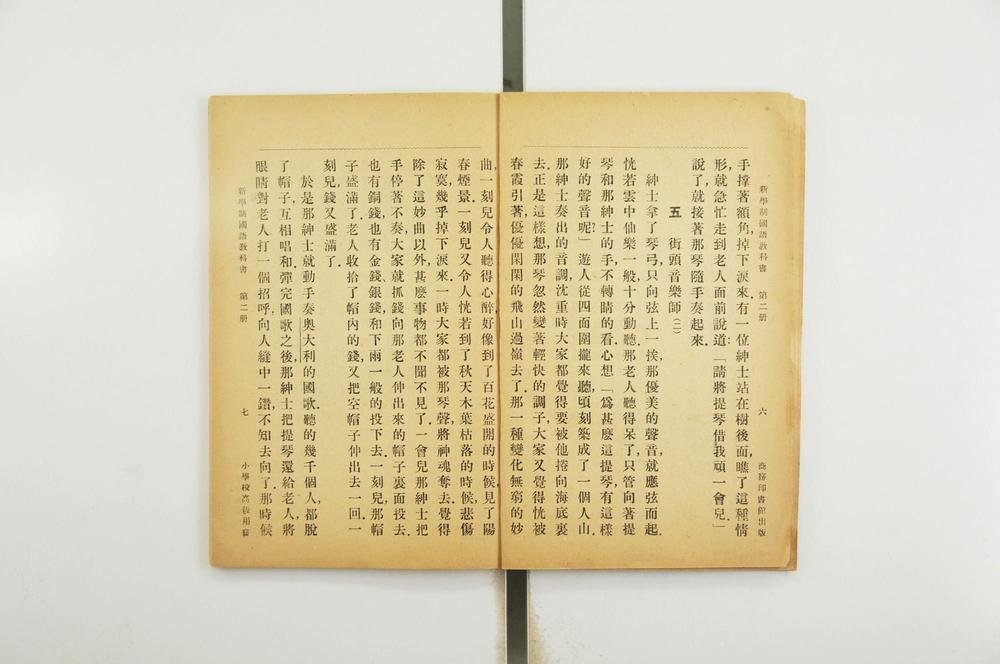 新學制國語教科書　第二册　六　商務印書館出版
手撑著額角，掉下淚來．有一位紳士站在樹後面，瞧了這種情
形，就急忙走到老人面前說道：「請將提琴借我頑一會兒」
說了，就接著那琴隨手奏起來．
五　街頭音樂師（二）
紳士拿了琴弓，只向弦上一挨，那優美的聲音，就應弦而起，
恍若雲中仙樂一般，十分動聽．那老人聽得呆了，只管向著提
琴和那紳士的手，不轉睛的看，心想，「爲甚麽這提琴有這樣
好的聲音呢？」遊人從四面圍攏來聽，頃刻築成了一個人山．
那紳士奏出的音調，沈重時大家都覺得要被他捲向海底裏
去．正是這樣想，那琴忽然變著輕快的調子，大家又覺得恍被
春霞引著，優優閑閑的飛山過嶺去了．那一種變化無窮的妙
曲，一刻兒令人聽得心醉，好像到了百花盛開的時候，見了陽
春煙景．一刻兒又令人恍若到了秋天木葉枯落的時候，悲傷
寂寞，幾乎掉下淚來．一時大家都被那琴聲，將神魂奪去，覺得
除了這妙曲以外，甚麽事物都不聞不見了．一會兒，那紳士把
手停著不奏，大家就抓錢向那老人伸出來的帽子裏面投去．
也有銅錢，也有金錢、銀錢，和下雨一般的投下去．一刻兒，那帽
子盛滿了．老人收拾了帽內的錢，又把空帽子伸出去一回，一
刻兒錢又盛滿了．
於是那紳士就動手奏奧大利的國歌．聽的幾千個人，都脫
了帽子互相唱和．彈完國歌之後，那紳士把提琴還給老人，將
眼睛對老人打一個招呼，向人縫中一鑽，不知去向了．那時候
新學制國語教科書　第二册　七　小學校高級用